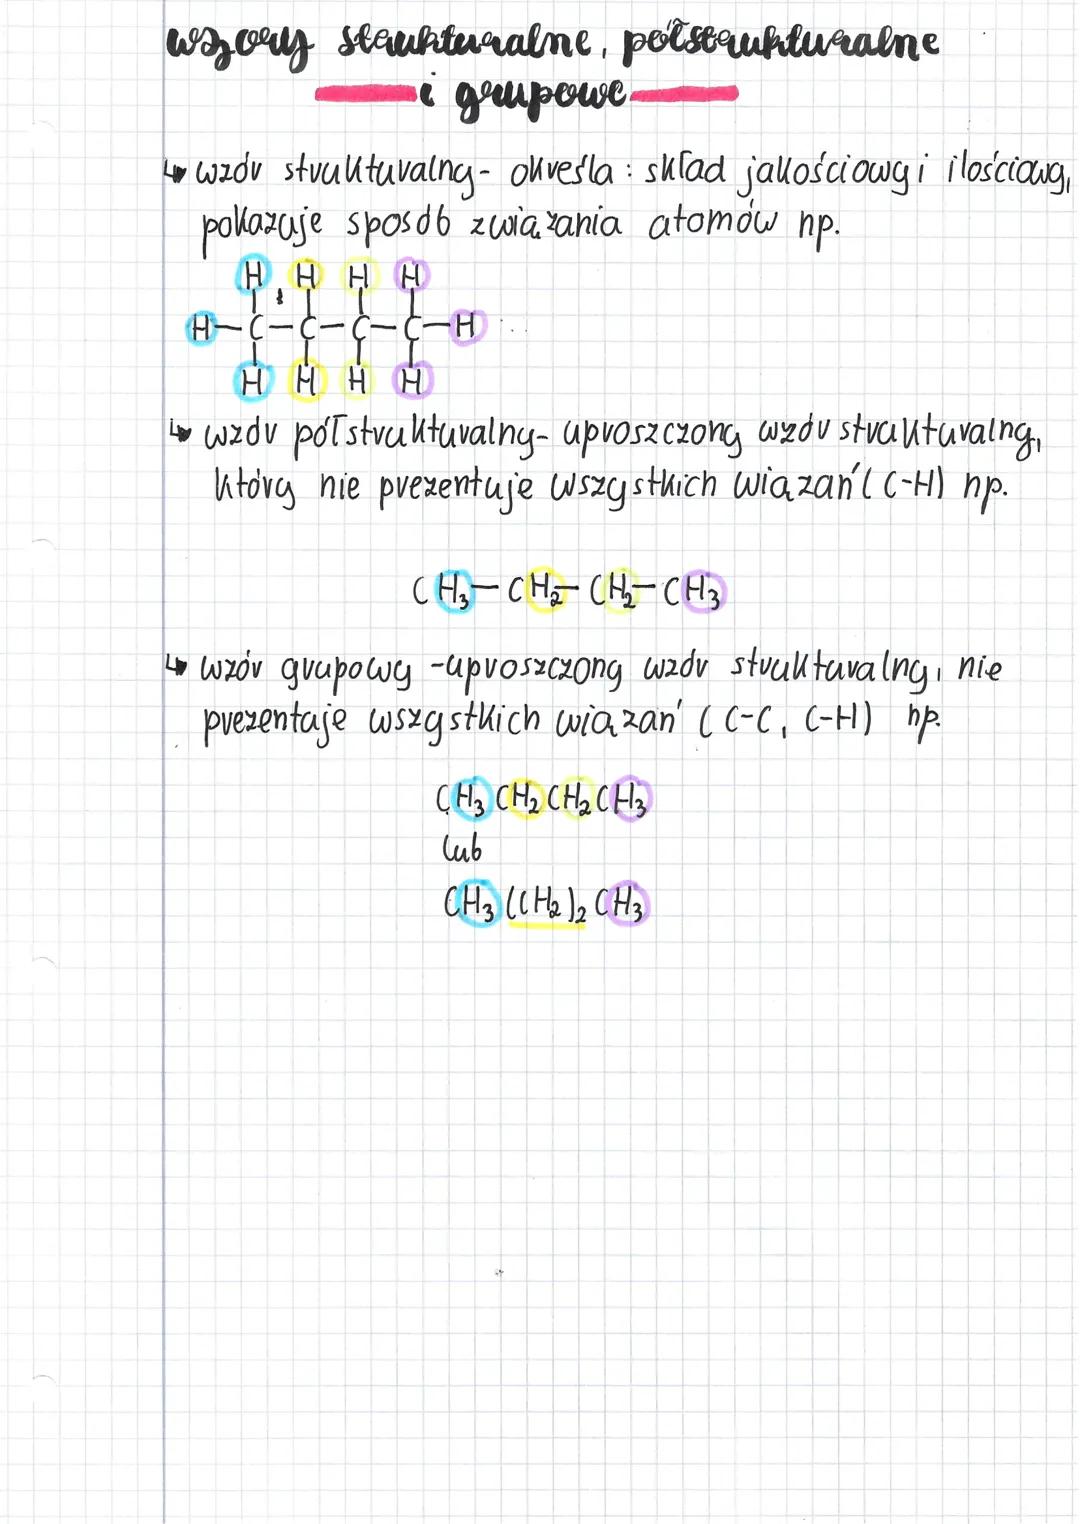 wzory strukturalne, półstrukturalne
i grupowe
↳ wzór strukturalny- określa: skład jakościowy i ilościowy,
pokazuje sposób związania atomów np.
H H H H
H-C-C-C-C-H
H H H H
↳ wzór półstrukturalny- uproszczony wzór strukturalny,
który nie prezentuje wszystkich wiązań (C-H) np.
CH₃-CH₂-CH₂-CH₃
↳ wzór grupowy -uproszczony wzór strukturalny, nie
prezentuje wszystkich wiązań (C-C, C-H) np.
CH₃CH₂CH₂CH₃
lub
CH₃(CH₂)₂CH₃